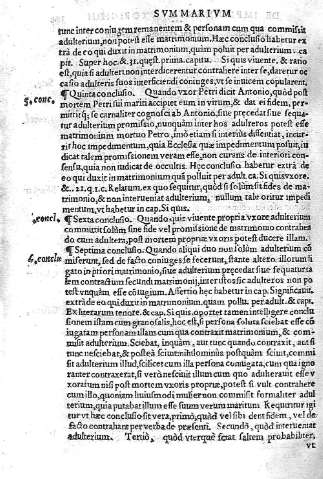 SVMMARIVM
tunc inter coniugem remanentem & personam cum qua commisit
adulterium, non potest esse matrimonium. Hæc conclusio habetur ex
trà de eo qui duxit in matrimonium, quim poluit per adulterium. ca
pit. Super hoc. & 31. quæst. prima. capitu. Si quis viuente, & ratio
est, quia si adulteri non interdicerentur contrahere inter se, daretur oc
casio adulteris suos interficiendi coniuges, vt se inuicem copularent.
5. conc. ¶ Quinta conclusio. Quando vxor Petri dicit Antonio, quòd post
mortem Petri sui mariti accipiet eum in virum, & dat ei fidem, per-
mittitq; se carnaliter cognosci ab Antonio, siue precedat siue sequa-
tur adulterium promissio, nunquàm inter hos adulteros potest esse
matrimonium mortuo Petro, imò etiam si interiùs dissentiat, incur-
rit hoc impedimentum, quia Ecclesia quæ impedimentum posuit, iu
dicat talem promissionem veram esse, non curans de interiori con-
sensu, quia non iudicat de occultis. Hæc conclusio habetur extrà de
eo qui duxit in matrimonium quã polluit per adult. ca. Si quis vxore.
&. 21. q. 1. c. Relatum. ex quo sequitur, quòd si solùm sit fides de ma-
trimonio, & non interueniat adulterium, nullum tale oritur impedi
mentum, vt habetur in cap. Si quis.
¶ Sexta conclusio. Quando quis viuente propria vxore adulterium
commisit solùm, sine fide vel promissione de matrimonio contrahẽ
do cum adultera, post mortem propriæ vxoris potest ducere illam.
¶ Septima conclusio. Quando aliqui duo non solùm adulterium cõ
6. conclu miserunt, sed de facto coniuges se fecerunt, stante altero illorum li
gato in priori matrimonio, siue adulterium precedat siue sequatur
tem contractum secundi matrimonij, inter istos sic adulteros non po
test vnquàm esse coniugium. Assertio hæc habetur in cap. Significauit.
extrà de eo qui duxit in matrimonium. quam pollu. per adult. & cap.
Ex literarum tenore. & cap. Si quis. oportet tamen intelligere conclu
sionem istam cum grano salis, hoc est, si persona soluta sciebat esse cõ
iugatam personam illam cum qua contraxit matrimonium, & com-
misit adulterium. Sciebat, inquàm, aut tunc quando contraxit, aut si
tunc nesciebat, & posteà sciuit nihilominùs postquàm sciuit, commi
sit adulterium illud, scilicet cum illa persona coniugata, cum qua igno
ranter contraxerat, si verò nesciuit illum cum quo adulterauit esse v
xoratum nisi post mortem vxoris propriæ, potest si vult contrahere
cum illo, quoniam huiusmodi mulier non commisit formaliter adul
terium, quia putabat illum esse suum verum maritum. Requiritur igi
tur vt hæc conclusio sit vera, primò, quòd vel sibi dent fidem, vel de
facto contrahant per verba de præsenti. Secundò, quòd interueniat
adulterium. Tertiò, quòd vterque sciat saltem probabiliter,
vt